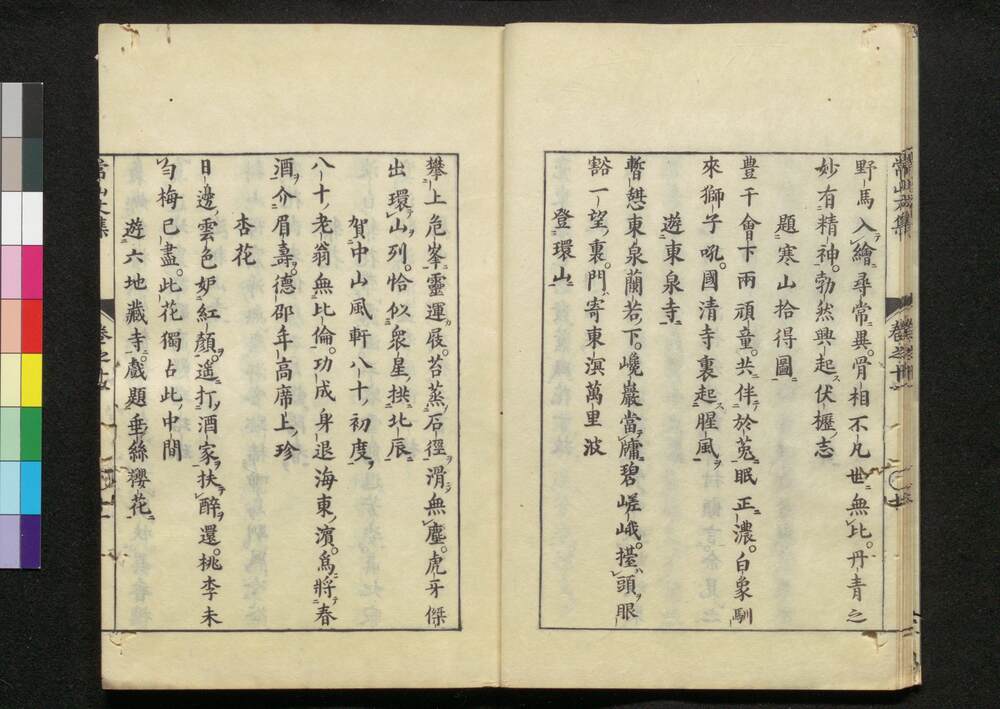 野馬入繪尋常異骨相不凡世無比丹青之
妙有精神勃然興起伏櫪志
題寒山拾得圖
豊干會下兩頑童共伴於菟眠正濃白象馴
來獅子吼國清寺裏起腥風
遊東泉寺
暫憩東泉蘭若下巉巖當牗碧嵯峨擡頭眼
豁一望裏門寄東溟萬里波
登環山
攀上危峯靈運屐苔蒸石徑滑無塵虎牙傑
出環山列恰似衆星拱北辰
賀中山風軒八十初度
八十老翁無比倫功成身退海東濱爲將春
酒介眉壽德邵年高席上珍
杏花
日邊雲色妒紅顔遥打酒家扶醉還桃李未
匀梅已盡此花獨占此中間
遊六地藏寺戲題垂絲櫻花
常山文集